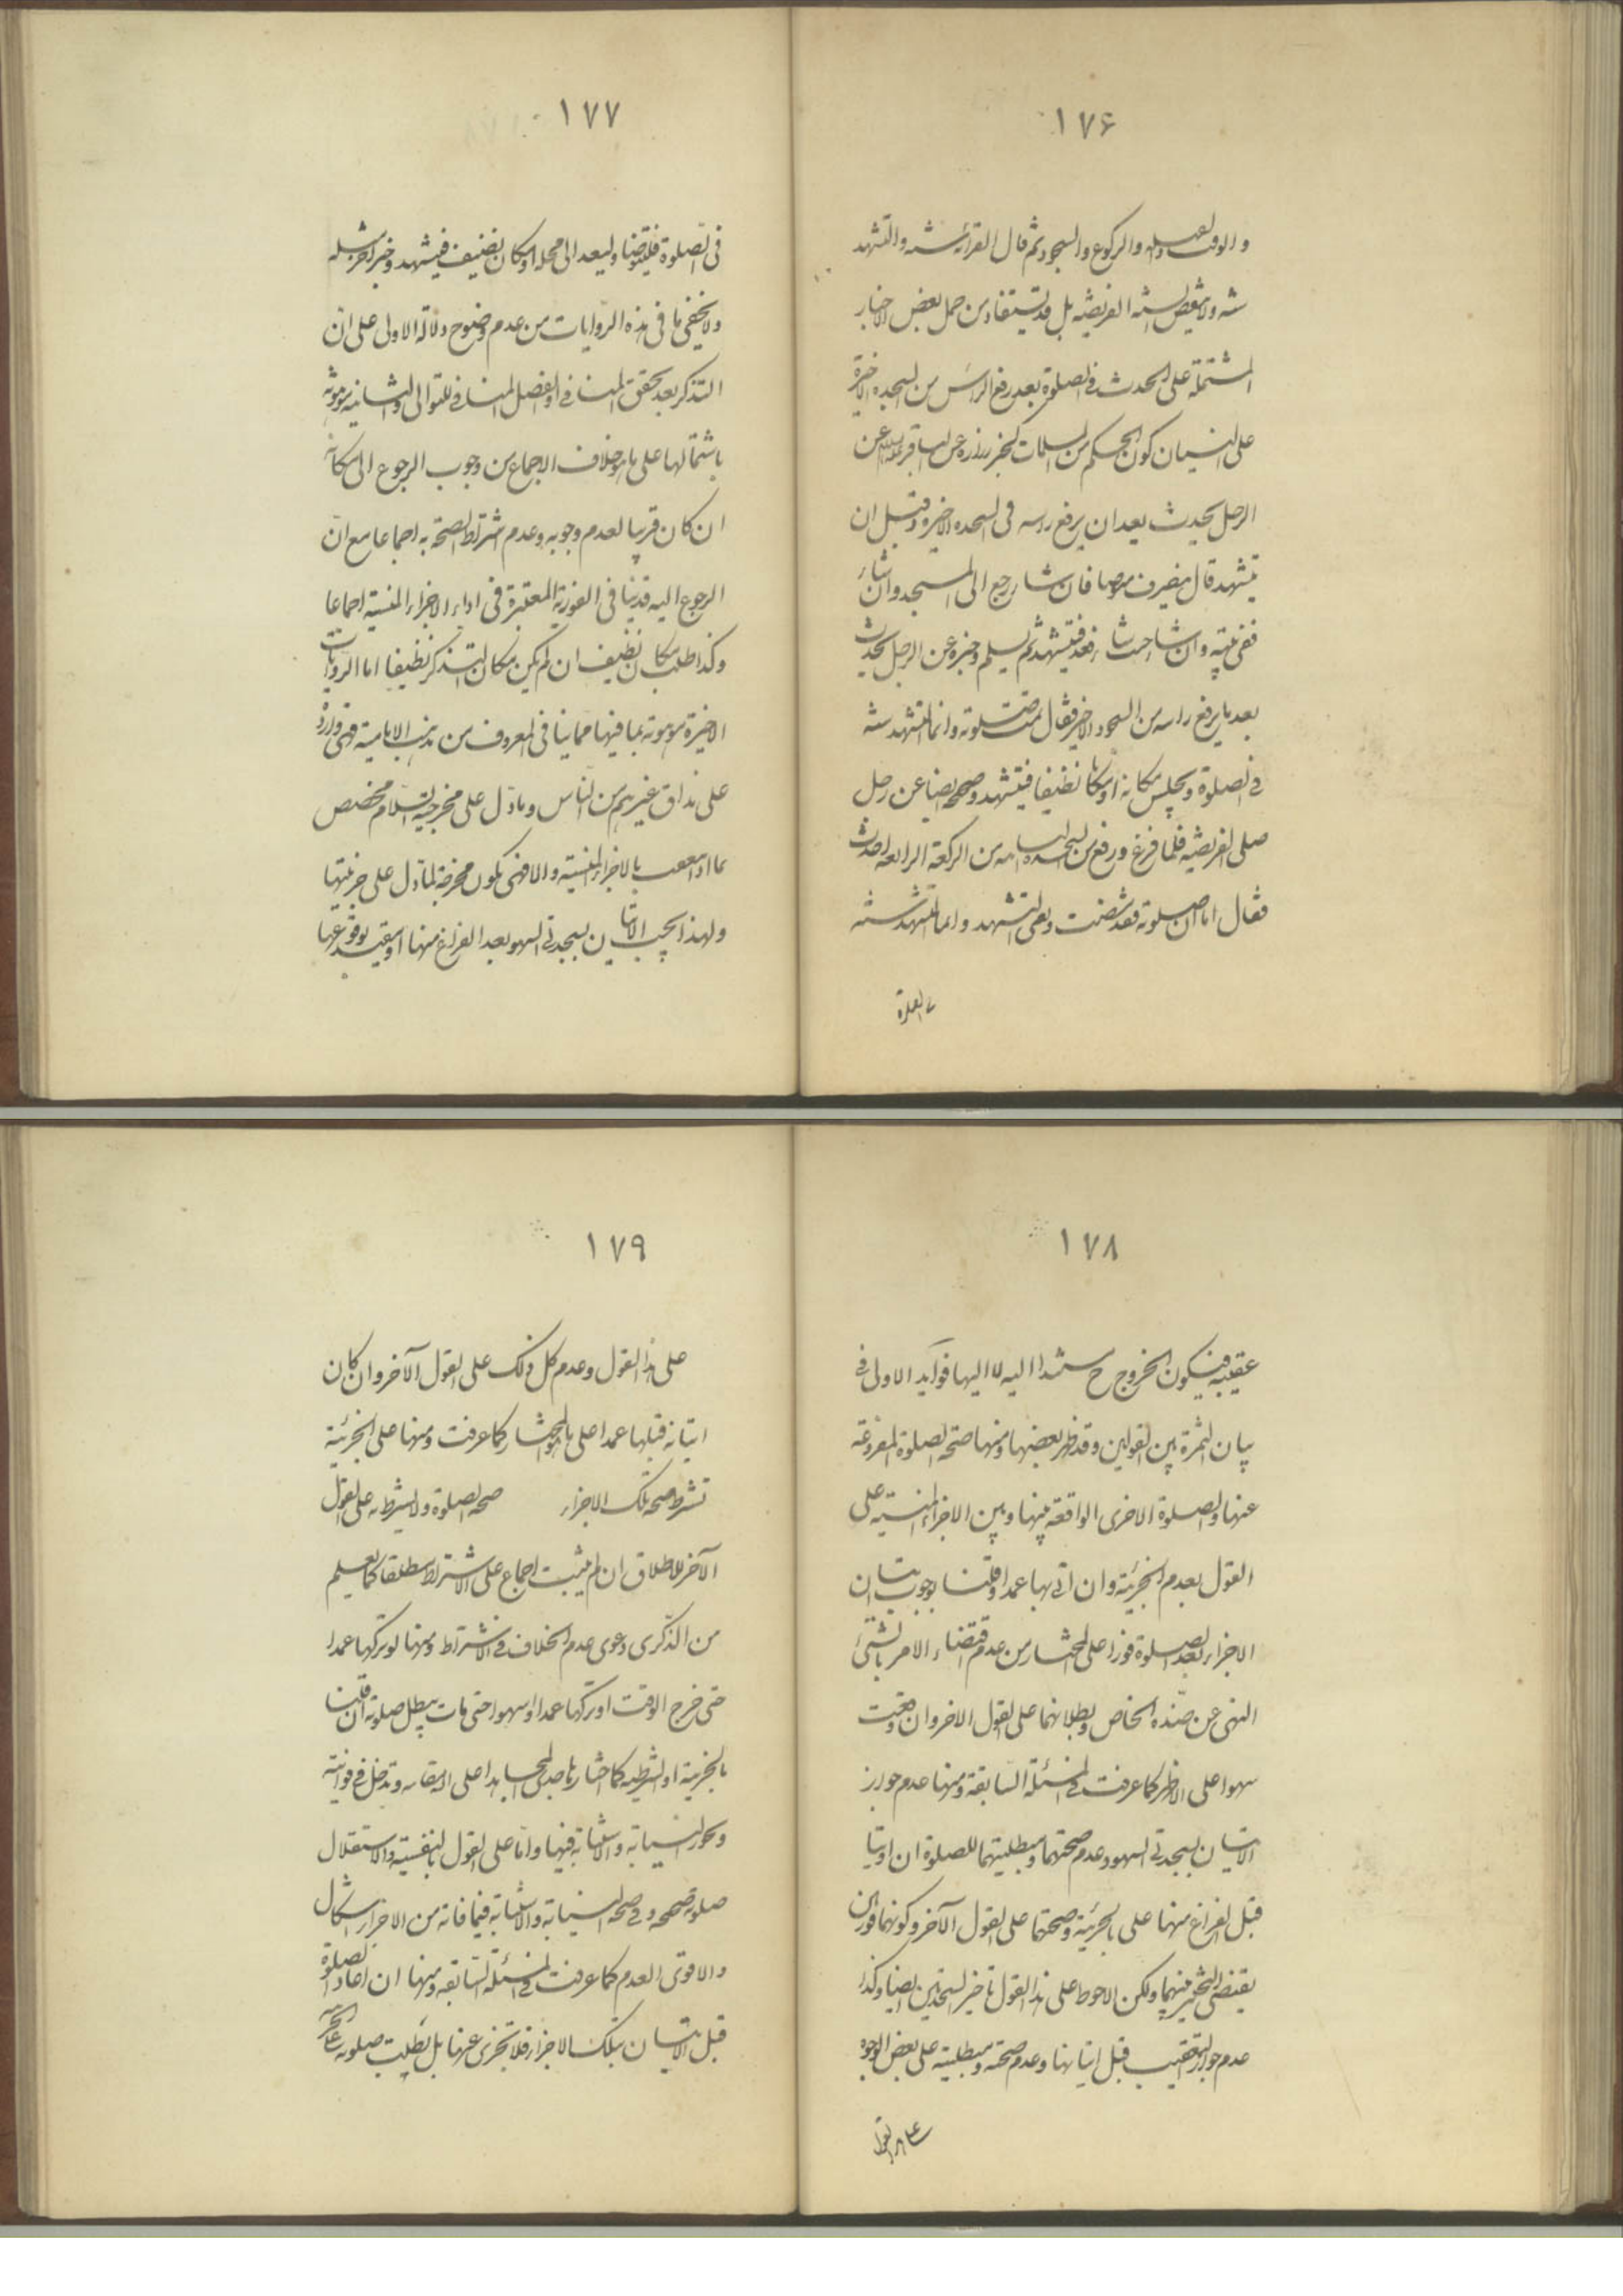 ١٧۶
والوقت والقبله والركوع والسجود ثم قال القرائة سنة والتشهد
سنة ولا ينقض السنة الفريضة بل قد يستفاد من حمل بعض الاخبار
المشتملة على الحدث فى الصلوة بعد رفع الراس من السجدة الاخيرة
على النسيان كون الحكم من المسلمات كخبر زرارة عن الباقر عن
الرجل يحدث بعد ان يرفع راسه فى السجدة الاخيرة وقبل ان
يتشهد قال ينصرف فيتوضا فان شاء رجع الى المسجد وان شاء
ففى بيته وان شاء حيث شاء قعد فيتشهد ثم يسلم وخبره عن الرجل يحدث
بعد ما يرفع راسه من السجود الاخير فقال تمت صلوته وانما التشهد سنة
فى الصلوة ويجلس مكانه او مكانا نظيفا فيتشهد وصحيحه ايضا عن رجل
صلى الفريضة فلما فرغ ورفع راسه من السجدة الثانية من الركعة الرابعة احدث
فقال اما صلوته فقد مضت وبقى التشهد وانما التشهد سنة
فى الصلوة
١٧٧
فى الصلوة فليتوضا وليعد الى مجلسه او مكان نظيف فيتشهد وخبر اخر مثله
ولا يخفى ما فى هذه الروايات من عدم وضوح دلالة الاولى على ان
التذكر بعد تحقق المنافى او الفصل المنافى للتوالى والثانية موهونة
باشتمالها على ما هو خلاف الاجماع من وجوب الرجوع الى مكانه
ان كان قريبا لعدم وجوبه وعدم اشتراط الصحة به اجماعا مع ان
الرجوع اليه قد ينافى الفورية المعتبرة فى اداء الاجزاء المنسية اجماعا
وكذا طلب مكان نظيف ان لم يكن مكان التذكر نظيفا اما الروايات
الاخيرة موهونة بما فيها مما ينافى المعروف من مذهب الامامية فهى واردة
على مذاق غيرهم من الناس وما دل على مخرجية السلام مخصص
بما اذا تعقب بالاجزاء المنسية والا فهى تكون مخرجة لما دل على جزئيتها
ولهذا يجب الاتيان بسجدتى السهو بعد الفراغ منها او مقيد بوقوعها
١٧٨
عقيبه فيكون الخروج ح مستندا اليه لا اليها فوائد الاولى فى
بيان الثمرة بين القولين وقد ظهر بعضها ومنها صحة الصلوة المفروغة
عنها والصلوة الاخرى الواقعة بينها وبين الاجزاء المنسية على
القول بعدم الجزئية وان اتى بها عمدا وقلنا بوجوب اتيان
الاجزاء بعد الصلوة فورا على المختار من عدم اقتضاء الامر بالشئ
النهى عن ضده الخاص وبطلانهما على القول الاخر وان وقعت
سهوا على الاظهر كما عرفت فى المسئلة السابقة ومنها عدم جواز
الاتيان بسجدتى السهو وعدم صحتهما ومبطليتهما للصلوة ان اوتيا
قبل الفراغ منها على الجزئية وصحتهما على القول الآخر وكونهما فوريان
يقتضى التخيير بينهما ولكن الاحوط على هذا القول تاخير السجدتين ايضا وكذا
عدم جواز التعقيب قبل اتيانها وعدم صحته ومبطليته على بعض الوجوه
على هذا القول
١٧٩
على هذا القول وعدم كل ذلك على القول الآخر وان كان
اتيانه قبلها عمدا على ما هو المختار كما عرفت ومنها على الجزئية
تشرط صحة تلك الاجزاء صحة الصلوة ولا يشرط به على القول
الآخر للاطلاق ان لم يثبت اجماع على الاشتراط مطلقا كما يعلم
من الذكرى دعوى عدم الخلاف فى الاشتراط ومنها لو تركها عمدا
حتى خرج الوقت او تركها عمدا او سهوا حتى مات يبطل صلوته ان قلنا
بالجزئية او الشرطية كما اختارها صدى على الاستقامة وتدخل فى فوائته
ويجوز النيابة والاستنابة فيها واما على القول بالنفسية والاستقلال
صلوته صحيحة وفى صحة النيابة والاستنابة فيما فاته من الاجزاء اشكال
والاقوى العدم كما عرفت فى المسئلة السابقة ومنها ان اعادا الصلوة
قبل الاتيان بتلك الاجزاء فلا تجزى عنها بل بطلت صلوته على الجزئية